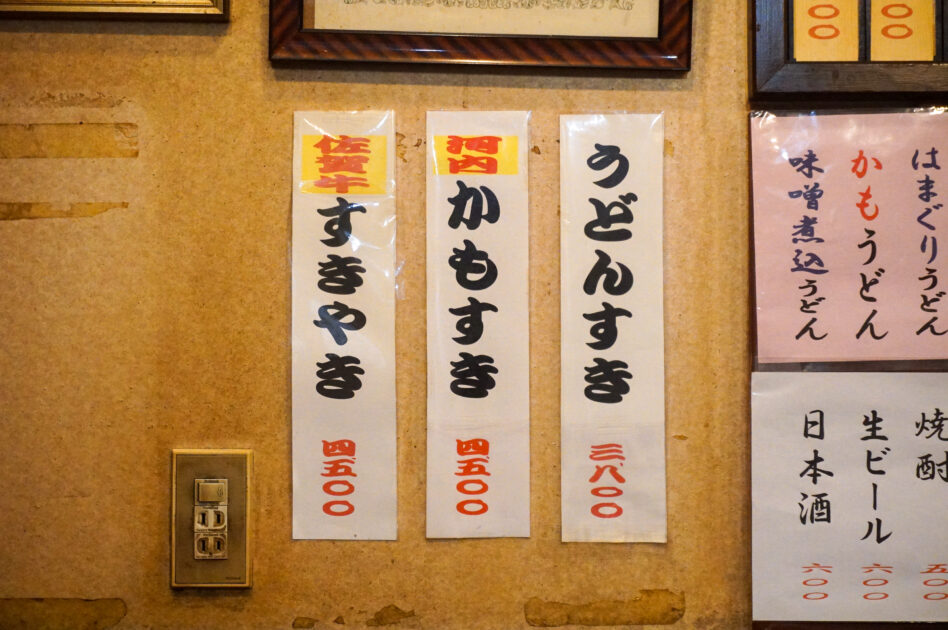 〇〇
〇〇
はまぐりうどん
かもうどん
味噌煮込うどん
焼酎 五〇〇
生ビール 六〇〇
日本酒 六〇〇
うどんすき
三、八〇〇
河内
かもすき
四、五〇〇
佐賀牛
すきやき
四、五〇〇